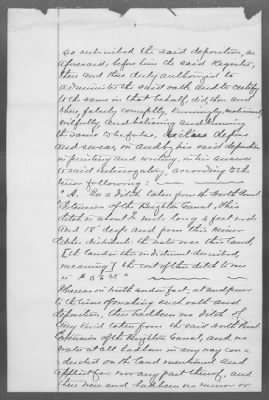 so subscribed the said deposition, as
aforesaid, before him the said Register,
then and there duly authorized to
administer the said oath and to certify
to the same in that behalf, did then and
there, falsely, corruptly, knowingly, maliciously,
wilfully and believing and knowing
the same to be false, declare depose
and swear, in and by his said deposition
in printing and writing, in his answer
to said interrogatory, according to the
tenor following:
" A. Is a ditch taken from the North Point
Extension of the Brighton Canal. This
ditch is about ¾ mile long 4 feet wide
and 18" deep and from this minor
ditches distribute the water over this land,
[the land in the indictment described,
meaning] the cost of this ditch to me
is $
Whereas in truth and in fact, at and prior
to the time of making such oath and
deposition, there had been no ditch of
any kind taken from the said North Point
Extension of the Brighton Canal, and no
water at all had been in any way con-
ducted on the land mentioned and
applied for nor any part thereof, and
there were and had been no minor or